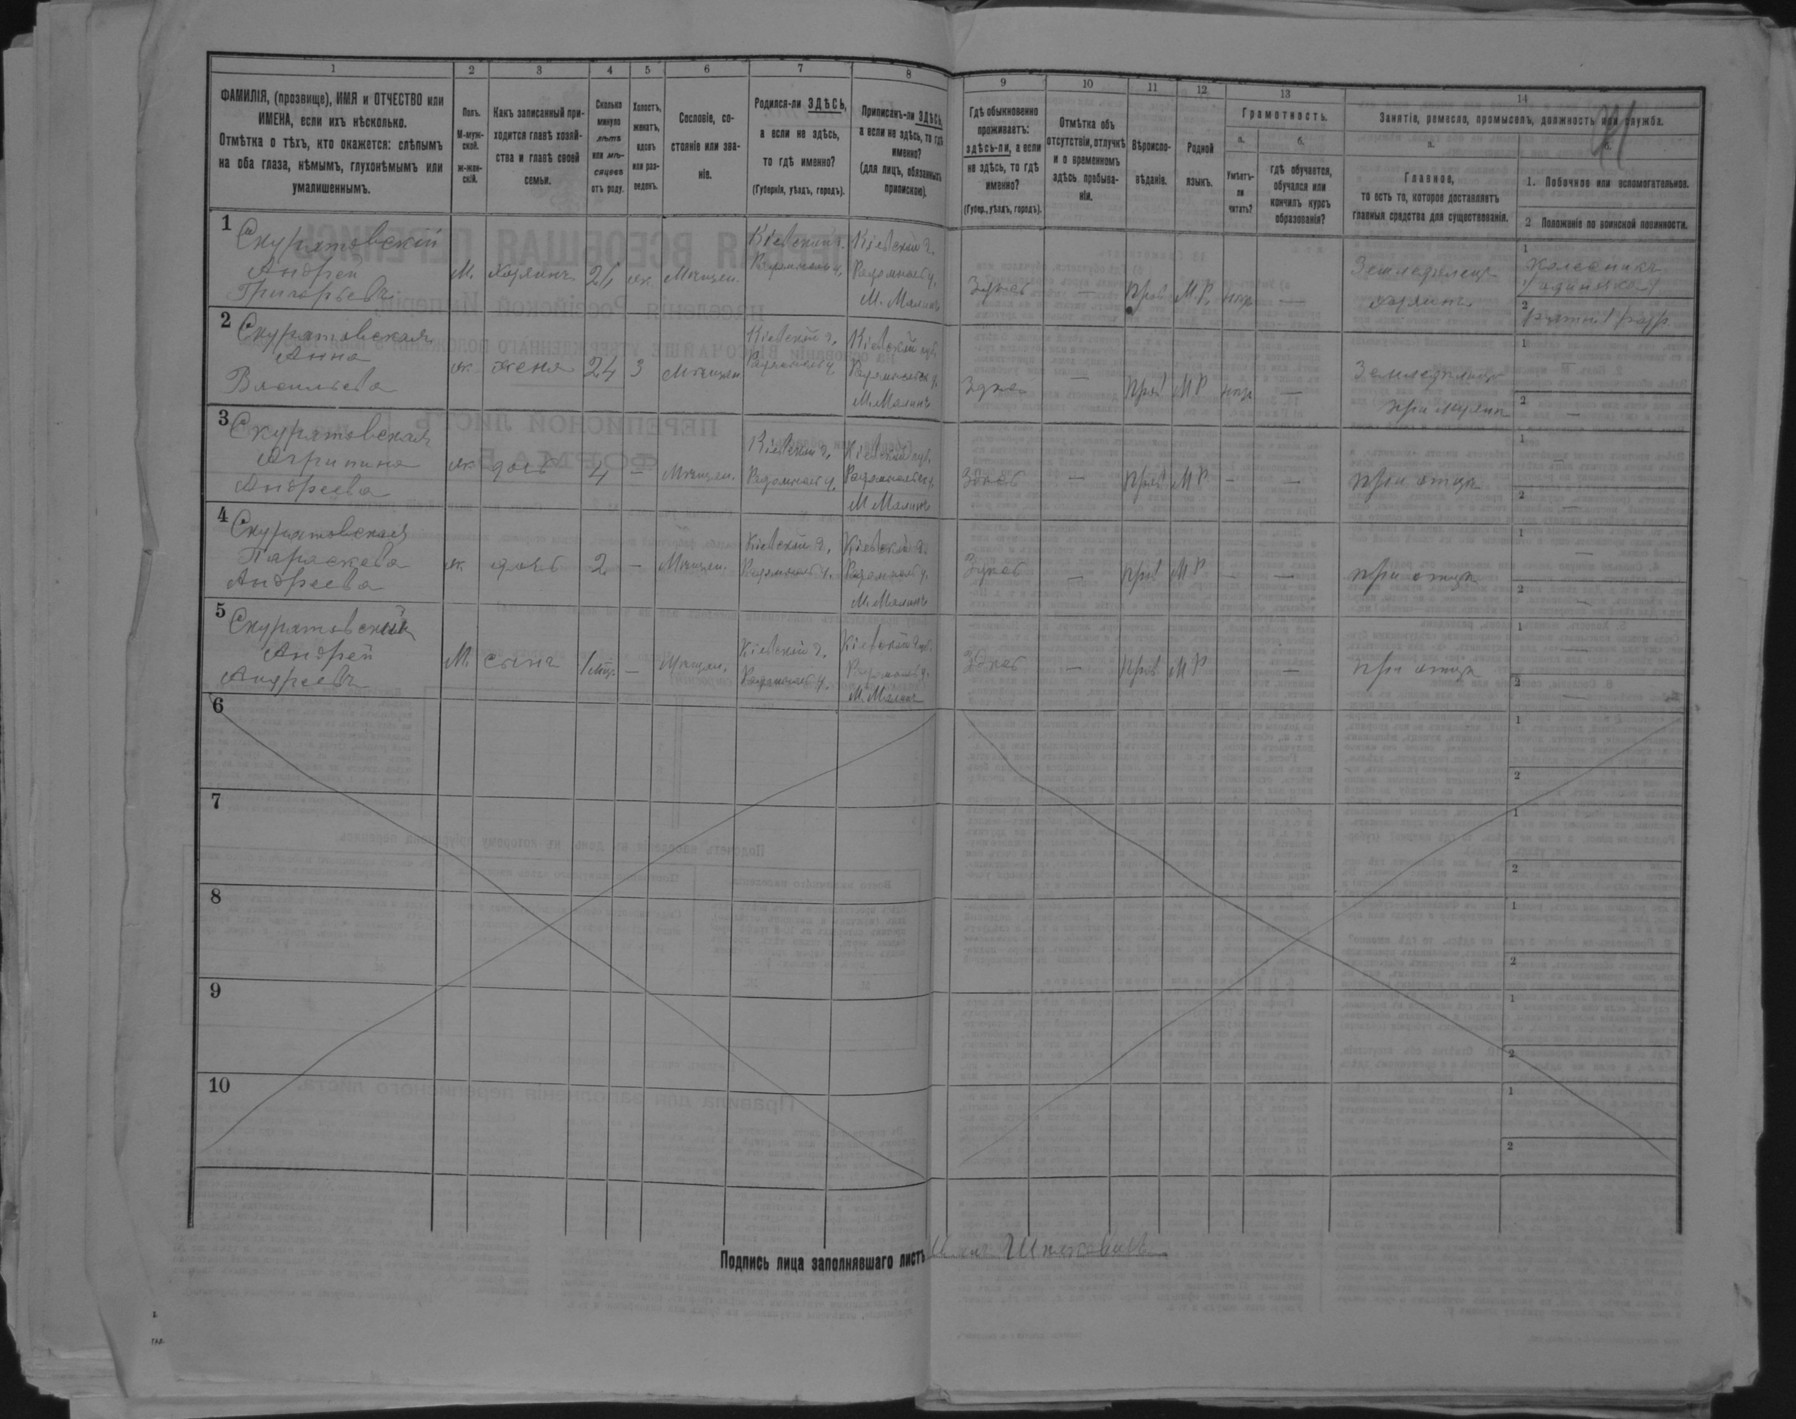 1
2
3
4
5
6
7
8
9
10
11
12
13
14
ФАМИЛІЯ, (прозвище), ИМЯ и ОТЧЕСТВО или
ИМЕНА, если ихъ нѣсколько.
Отмѣтка о тѣхъ, кто окажется: слѣпымъ
на оба глаза, нѣмымъ, глухонѣмымъ или
умалишеннымъ.
Полъ.
М-муж-
ской.
ж-жен-
скій.
Какъ записанный при-
ходится главѣ хозяй-
ства и главѣ своей
семьи.
Сколько
минуло
лѣтъ
или мѣ-
сяцевъ
отъ роду.
Холостъ,
женатъ,
вдовъ
или раз-
веденъ.
Сословіе, со-
стояніе или зва-
ніе.
Родился-ли ЗДѢСЬ,
а если не здѣсь,
то гдѣ именно?
(Губернія, уѣздъ, городъ).
Приписанъ-ли ЗДѢСЬ,
а если не здѣсь, то гдѣ
именно?
(для лицъ, обязанныхъ
припискою).
Гдѣ обыкновенно
проживаетъ:
здѣсь-ли, а если
не здѣсь, то гдѣ
именно?
(Губер., уѣздъ, городъ).
Отмѣтка объ
отсутствіи, отлучкѣ
и о временномъ
здѣсь пребыва-
ніи.
Вѣроиспо-
вѣданіе.
Родной
языкъ.
Грамотность.
а.
Умѣетъ-
ли
читать?
б.
гдѣ обучается,
обучался или
кончилъ курсъ
образованія?
Занятіе, ремесло, промыселъ, должность или служба.
а.
Главное,
то есть то, которое доставляетъ
главныя средства для существованія.
б.
1. Побочное или вспомогательное.
2 Положеніе по воинской повинности.
1 Скуратовскій
Андрей
Григорьевъ
М. хозяинъ 26 ж. Мѣщан.
Кіевской г.
Радомысл у.
Кіевской г.
Радомысл у.
М. Малинъ
Здѣсь — Прав. М.Р. —
Земледѣлец
хозяинъ
1
2
2 Скуратовская
Анна
Васильева
ж. жена 24 З Мѣщан.
Кіевской г.
Радомысл у.
Кіевской губ.
Радомысл у.
М. Малинъ
Здѣсь — Прав М Р —
1 —
2 —
3 Скуратовская
Агрипина
Андреева
ж. дочь 4 — Мѣщан.
Кіевской г.
Радомысл у.
Кіевской губ.
Радомысл у.
М Малинъ
Здѣсь — Прав М Р — — при отцѣ
1 —
2 —
4 Скуратовская
Параскева
Андреева
ж. дочь 2 — Мѣщан.
Кіевской г.
Радомысл у.
Кіевской г.
Радомысл у.
М. Малинъ
Здѣсь — Прав М Р — — при отцѣ
1 —
2 —
5 Скуратовскій
Андрей
Андреевъ
М. сынъ — Мѣщан.
Кіевской г.
Радомысл у.
Кіевской губ.
Радомысл у.
М. Малинъ
Здѣсь — Прав. М Р — при отцѣ
1 —
2 —
6
1
2
7
1
2
8
1
2
9
1
2
10
1
2
Подпись лица заполнявшаго листъ